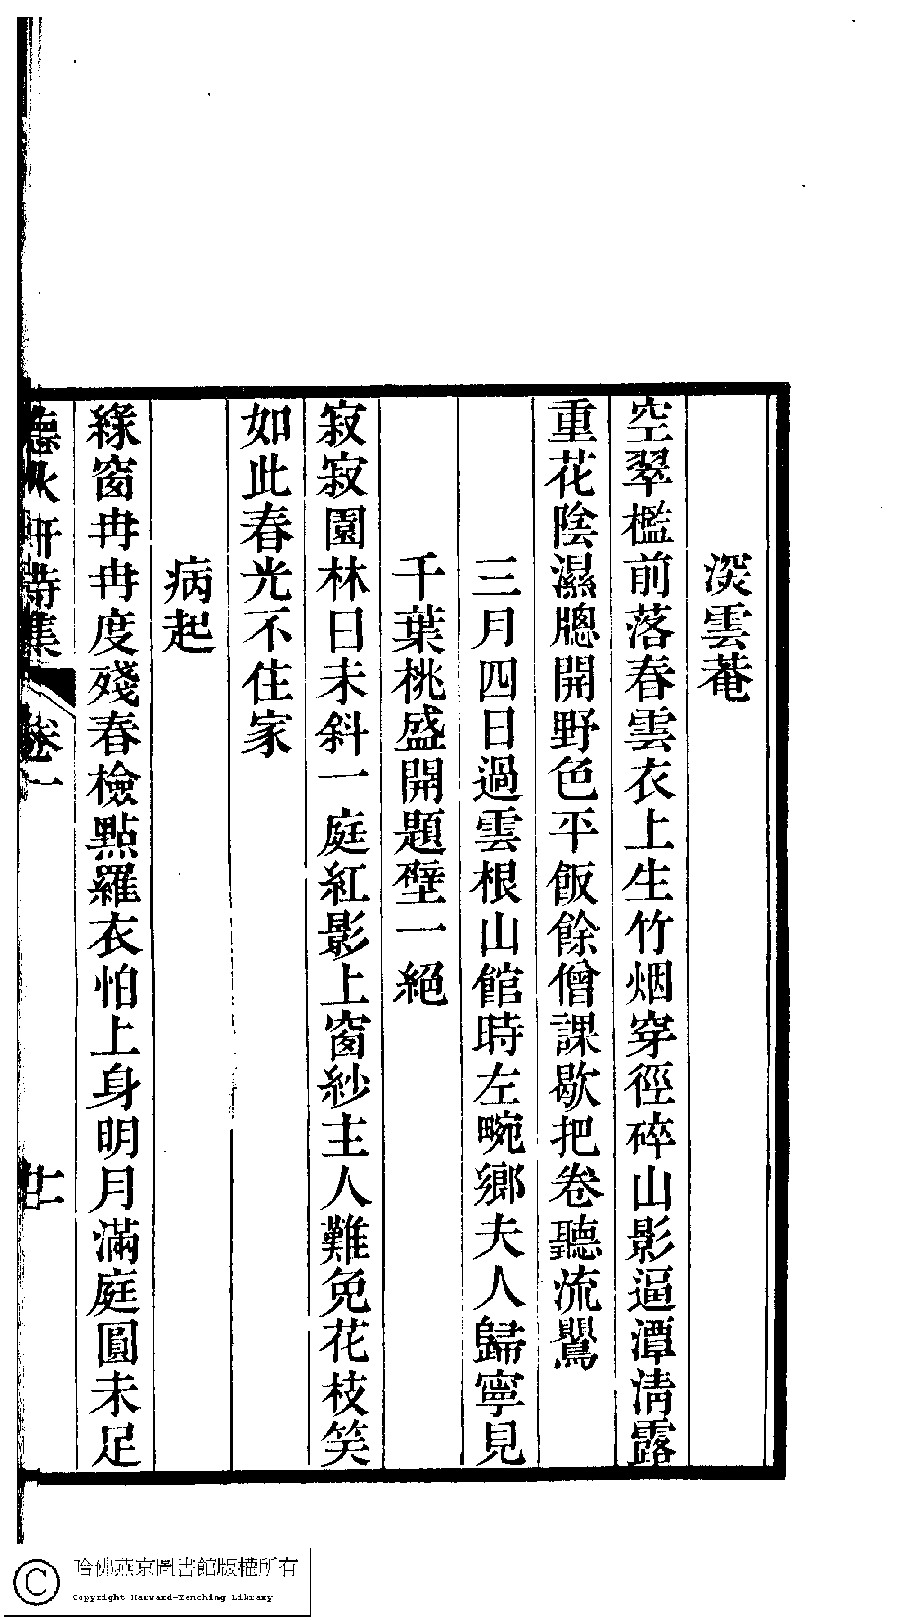 淡雲菴
空翠檻前落春雲衣上生竹烟穿徑碎山影逼潭淸露
重花陰濕牕開野色平飯餘僧課歇把卷聽流鶯
三月四日過雲根山館時左畹鄉夫人歸寧見
千葉桃盛開題壁一絕
寂寂園林日未斜一庭紅影上窗紗主人難免花枝笑
如此春光不住家
病起
綠窗冉冉度殘春檢點羅衣怕上身明月滿庭圓未足
德風軒詩集 卷一 廿一
哈佛燕京圖書館版權所有
Copyright Harvard-Yenching Library